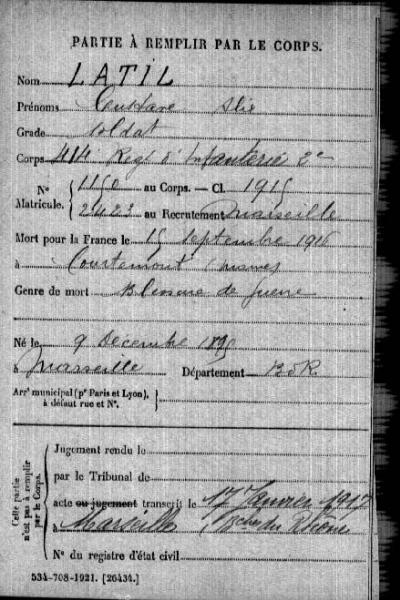 PARTIE À REMPLIR PAR LE CORPS.
Nom LATIL
Prénoms Gustave Elie
Grade Soldat
Corps 414 Regt d'Infanterie 2e
N° Matricule. 1150 au Corps. — Cl. 1915
2423 au Recrutement Marseille
Mort pour la France le 15 Septembre 1916
à Courtemont (Marne)
Genre de mort Blessure de guerre
Né le 9 Décembre 1895
à Marseille Département BdR
Arrt municipal (pr Paris et Lyon),
à défaut rue et N°.
Cette partie n'est pas à remplir par le Corps.
Jugement rendu le
par le Tribunal de
acte ou jugement transcrit le 17 Janvier 1917
à Marseille (Bches du Rhône)
N° du registre d'état civil
534-708-1921. [26434.]